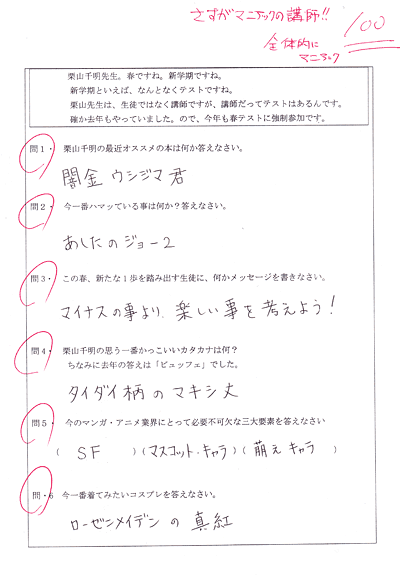 さすがマニアックの講師!!
全体的に
マニアック
100
栗山千明先生。春ですね。新学期ですね。
新学期といえば、なんとなくテストですね。
栗山先生は、生徒ではなく講師ですが、講師だってテストはあるんです。
確か去年もやっていました。ので、今年も春テストに強制参加です。
問1・ 栗山千明の最近オススメの本は何か答えなさい。
闇金 ウシジマ君
問2・ 今一番ハマッている事は何か?答えなさい。
あしたのジョー2
問3・ この春、新たな1歩を踏み出す生徒に、何かメッセージを書きなさい。
マイナスの事より、楽しい事を考えよう!
問4・ 栗山千明の思う一番かっこいいカタカナは何?
ちなみに去年の答えは「ビュッフェ」でした。
タイダイ柄のマキシ丈
問5・ 今のマンガ・アニメ業界にとって必要不可欠な三大要素を答えなさい
( SF )(マスコット・キャラ)( 萌えキャラ )
問・6 今一番着てみたいコスプレを答えなさい。
ローゼンメイデン の 真紅